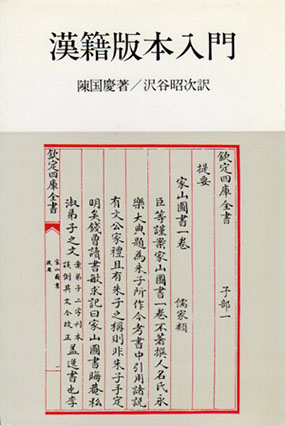 漢籍版本入門
陳国慶著／沢谷昭次訳
欽定四庫全書　子部一
提要
家山圖書一卷　儒家類
臣等謹案家山圖書一卷不著撰人名氏永
樂大典題為朱子所作今考書中引用諸説
有文公家禮且有朱子之稱則非朱子手定
明矣錢曽讀書敏求記曰家山圖書晦菴私
淑弟子之文案弟子二字刋本誤倒其文今改正蓋逸書也李
欽定四庫全書
家山圖書
提要